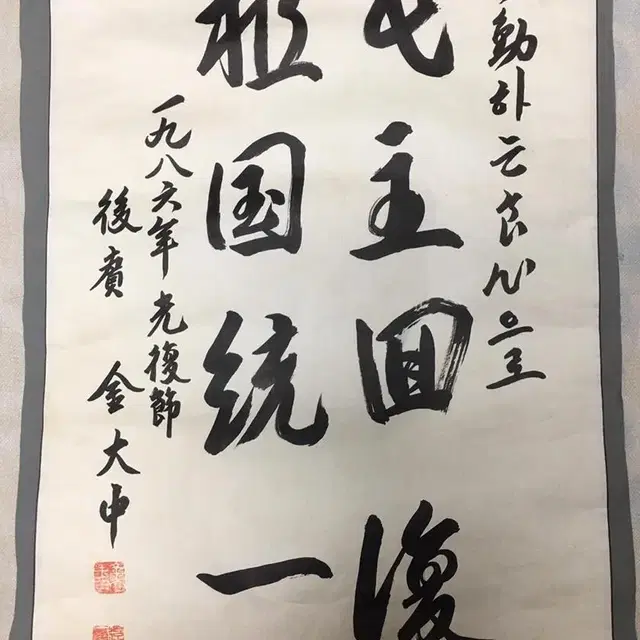 動하는 良心으로
民主回復
祖国統一
一九八六年 光復節
後廣 金大中